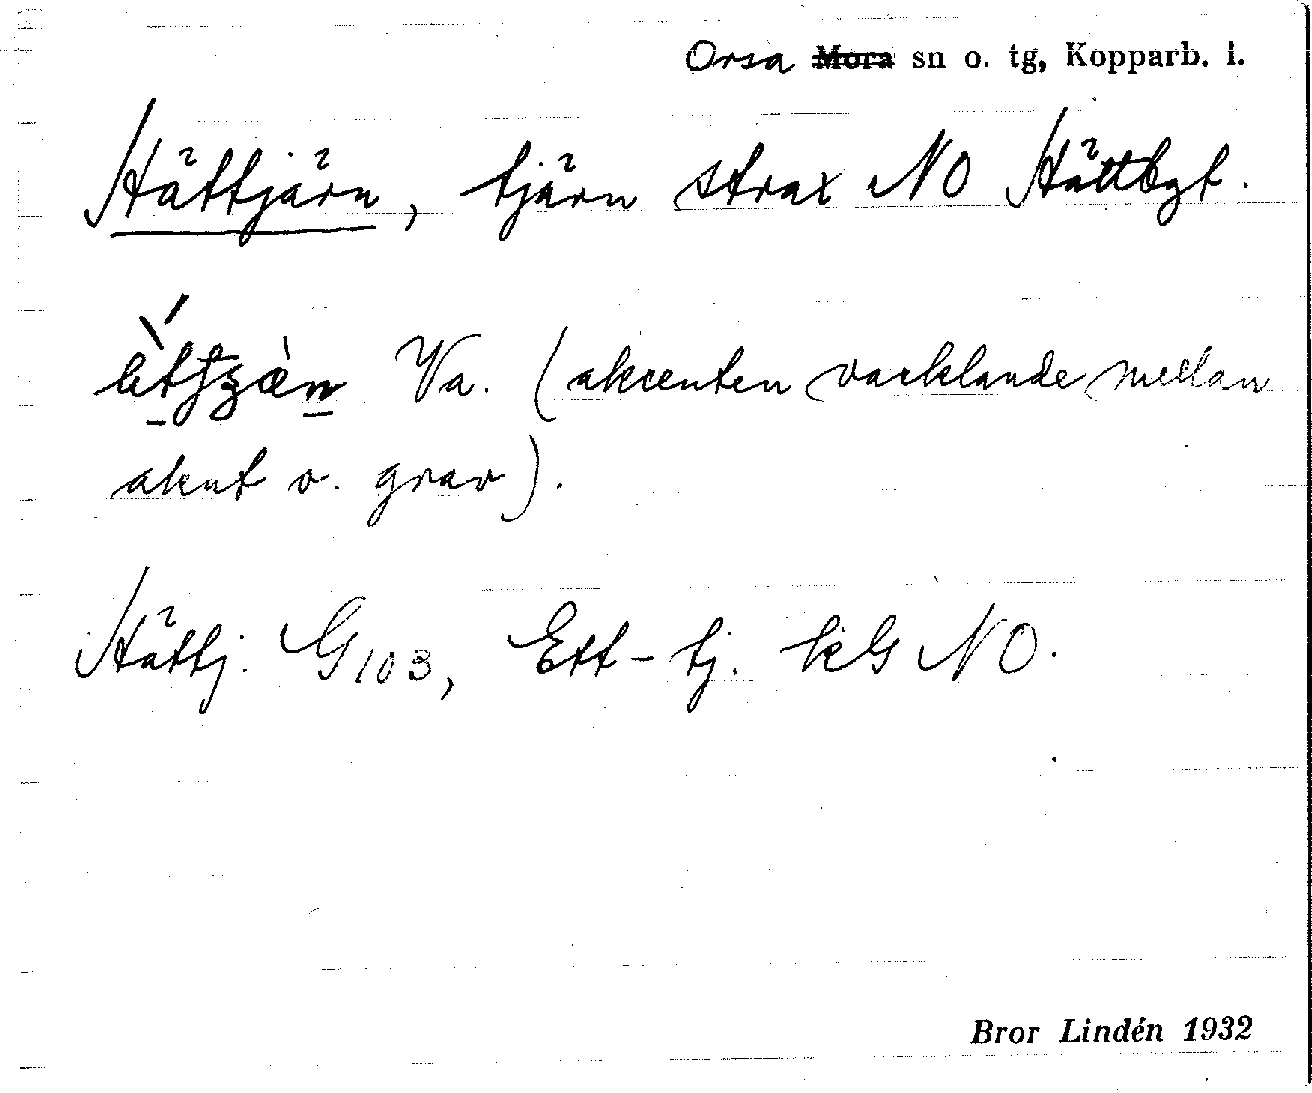 Orsa Mora sn o. tg, Kopparb. l.
Hättjärn, tjärn strax NO Hättbgt.
Va. (akcenten vacklande mellan
akut o. grav).
Hättj. G103, Ett-tj. kG NO.
Bror Lindén 1932